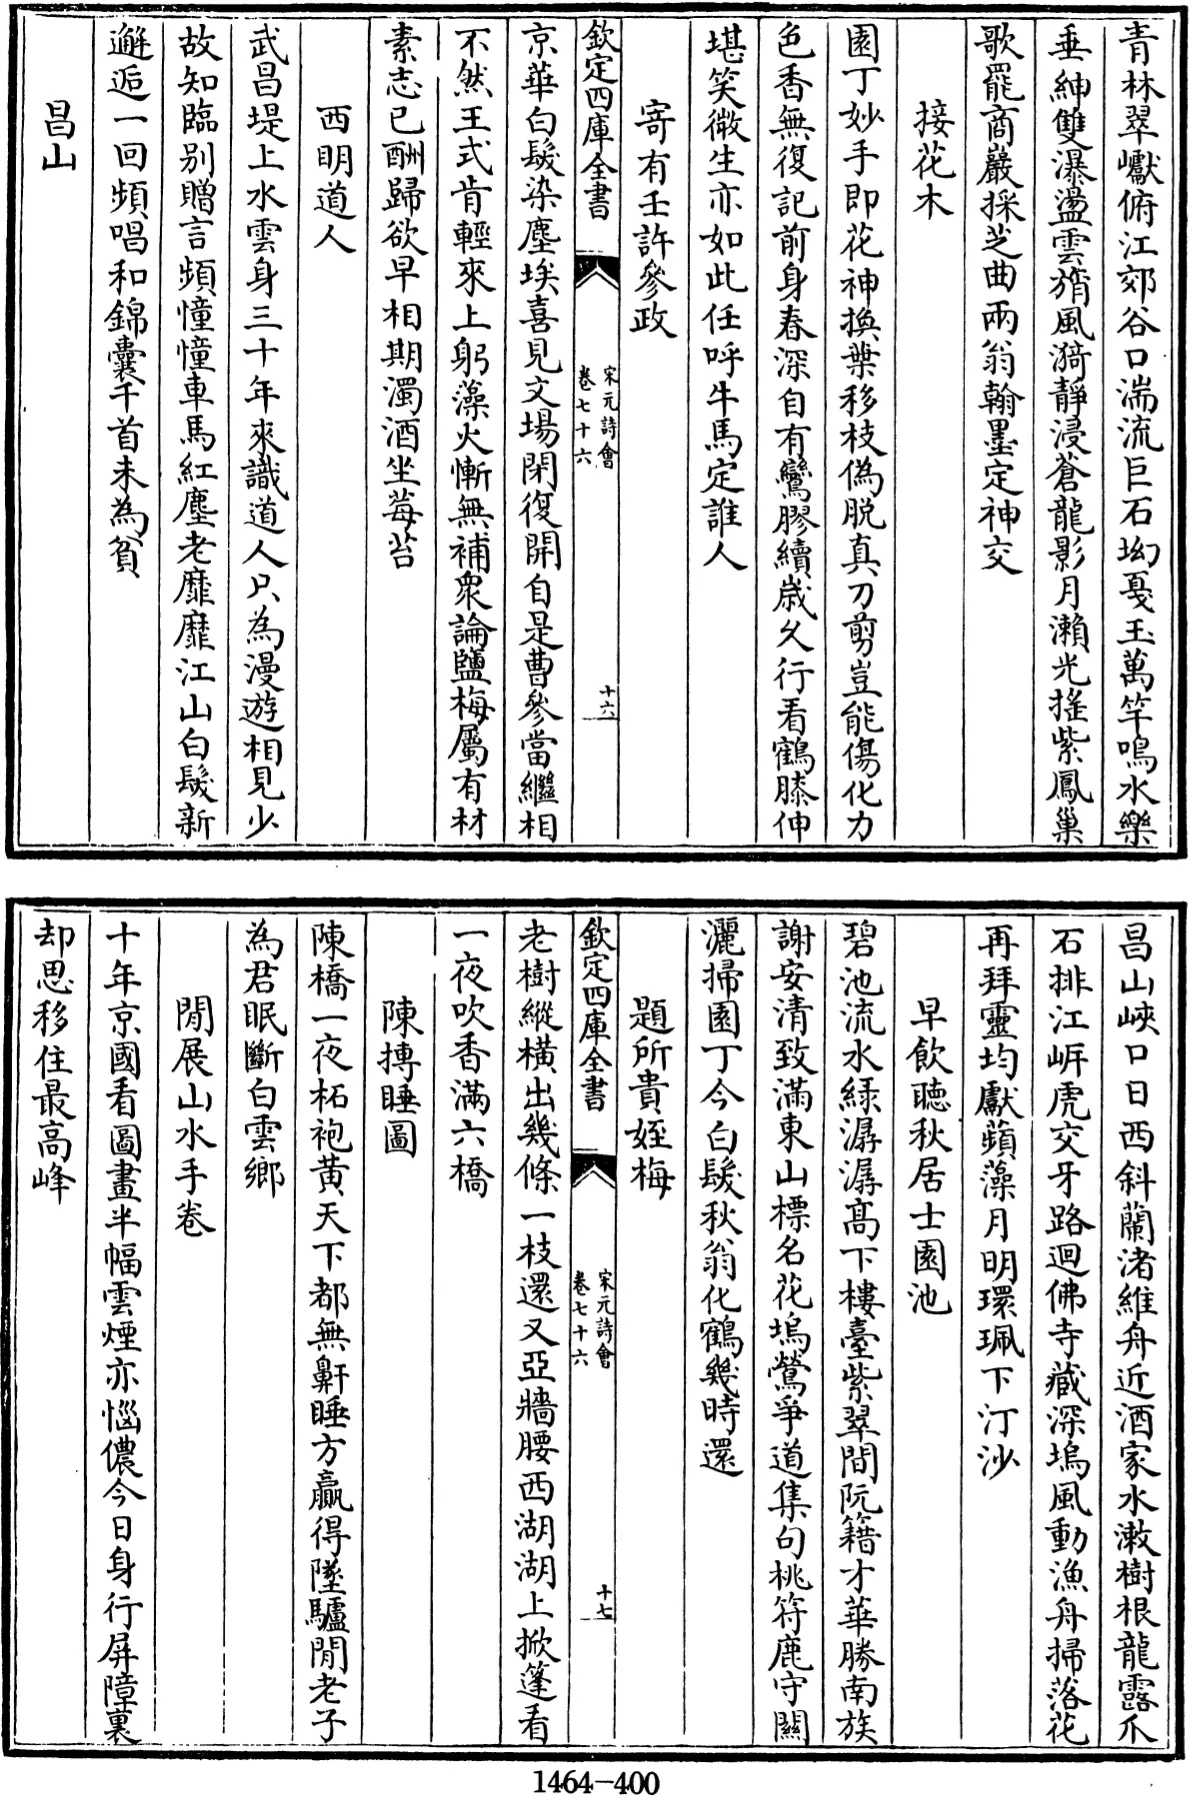 青林翠巘俯江郊谷口湍流巨石坳戞玉萬竿鳴水樂
垂紳雙瀑盪雲旓風漪靜浸蒼龍影月瀨光搖紫鳳巢
歌罷商巖採芝曲兩翁翰墨定神交
接花木
園丁妙手即花神換葉移枝偽脫真刀剪豈能傷化力
色香無復記前身春深自有鸞膠續歲久行看鶴膝伸
堪笑微生亦如此任呼牛馬定誰人
寄有壬許參政
欽定四庫全書
宋元詩會
卷七十六
十六
京華白髮染塵埃喜見文場閉復開自是曹參當繼相
不然王式肯輕來上躬藻火慚無補衆論鹽梅屬有材
素志已酬歸欲早相期濁酒坐莓苔
西明道人
武昌堤上水雲身三十年來識道人只為漫遊相見少
故知臨别贈言頻憧憧車馬紅塵老靡靡江山白髮新
邂逅一回頻唱和錦囊千首未為貧
昌山
昌山峽口日西斜蘭渚維舟近酒家水漱樹根龍露爪
石排江岸虎交牙路迴佛寺藏深塢風動漁舟掃落花
再拜靈均獻蘋藻月明環珮下汀沙
早飲聽秋居士園池
碧池流水緑潺潺髙下樓臺紫翠間阮籍才華勝南族
謝安清致滿東山標名花塢鶯爭道集句桃符鹿守關
灑掃園丁今白髮秋翁化鶴幾時還
題所貴姪梅
欽定四庫全書
宋元詩會
卷七十六
十七
老樹縱橫出幾條一枝還又亞牆腰西湖湖上掀篷看
一夜吹香滿六橋
陳摶睡圖
陳橋一夜柘袍黃天下都無鼾睡方贏得墜驢閒老子
為君眠斷白雲鄉
閒展山水手卷
十年京國看圖畫半幅雲煙亦惱儂今日身行屏障裏
却思移住最高峰
1464-400